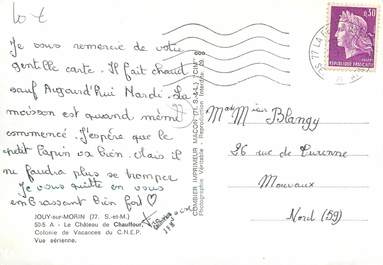 Je vous remercie de votre
gentille carte. Il fait chaud
sauf Aujourd'hui Mardi. La
moisson est quand même
commencé. J'espère que le
petit lapin va bien. Mais il
ne faudra plus se tromper
Je vous quitte en vous
embrassant Bien fort
JOUY-sur-MORIN (77. S.-et-M.)
50-5 A - Le Château de Chauffour,
Colonie de Vacances du C.N.E.P.
Vue aérienne.
COMBIER IMPRIMEUR MACON (71. S.-&-L.) "CIM"
Photographie Véritable - Reproduction Interdite
77 LA
0,50
REPUBLIQUE FRANÇAISE
Blangy
26 rue de Turenne
Mouvaux
Nord (59)